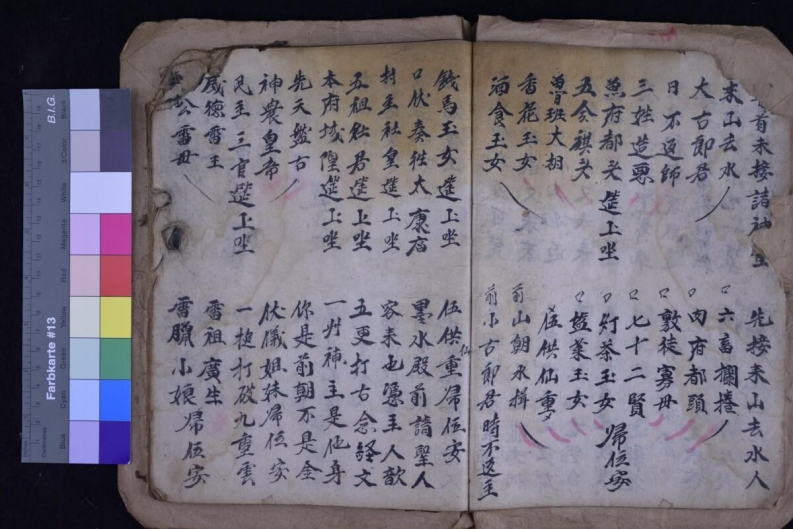 首未接請神
先接来山去水人
来山去水
六畜欄捲
大古郎君
肉府都頭
日不返師
敷徒寡母
三姓造票
七十二賢
魚府都头
灯茶玉女
筵上坐
歸位安
五会旗头
盐菜玉女
曾班大胡
位供仙童
香花玉女
前山朝水揖
酒食玉女
前小古郎君時不返主
錢馬玉女筵上坐
位供重歸位安
口伏奏
墨水殿前請聖人
封主社皇筵上坐
家来也憑主人歆
五祖
君筵上坐
五更打古念經文
本府城隍筵上坐
一州神主是他身
先天盤古
你是前朝不是全
神農皇帝
伏儀姐妹歸位安
民主三官筵上坐
一搥打破九重雲
威德雷王
雷祖廣生
公雷母
雷臘小娘歸位安
B.I.G.
Farbkarte #13
Blue
Cyan
Green
Yellow
Red
Magenta
White
3/Color
Black
Centimetres